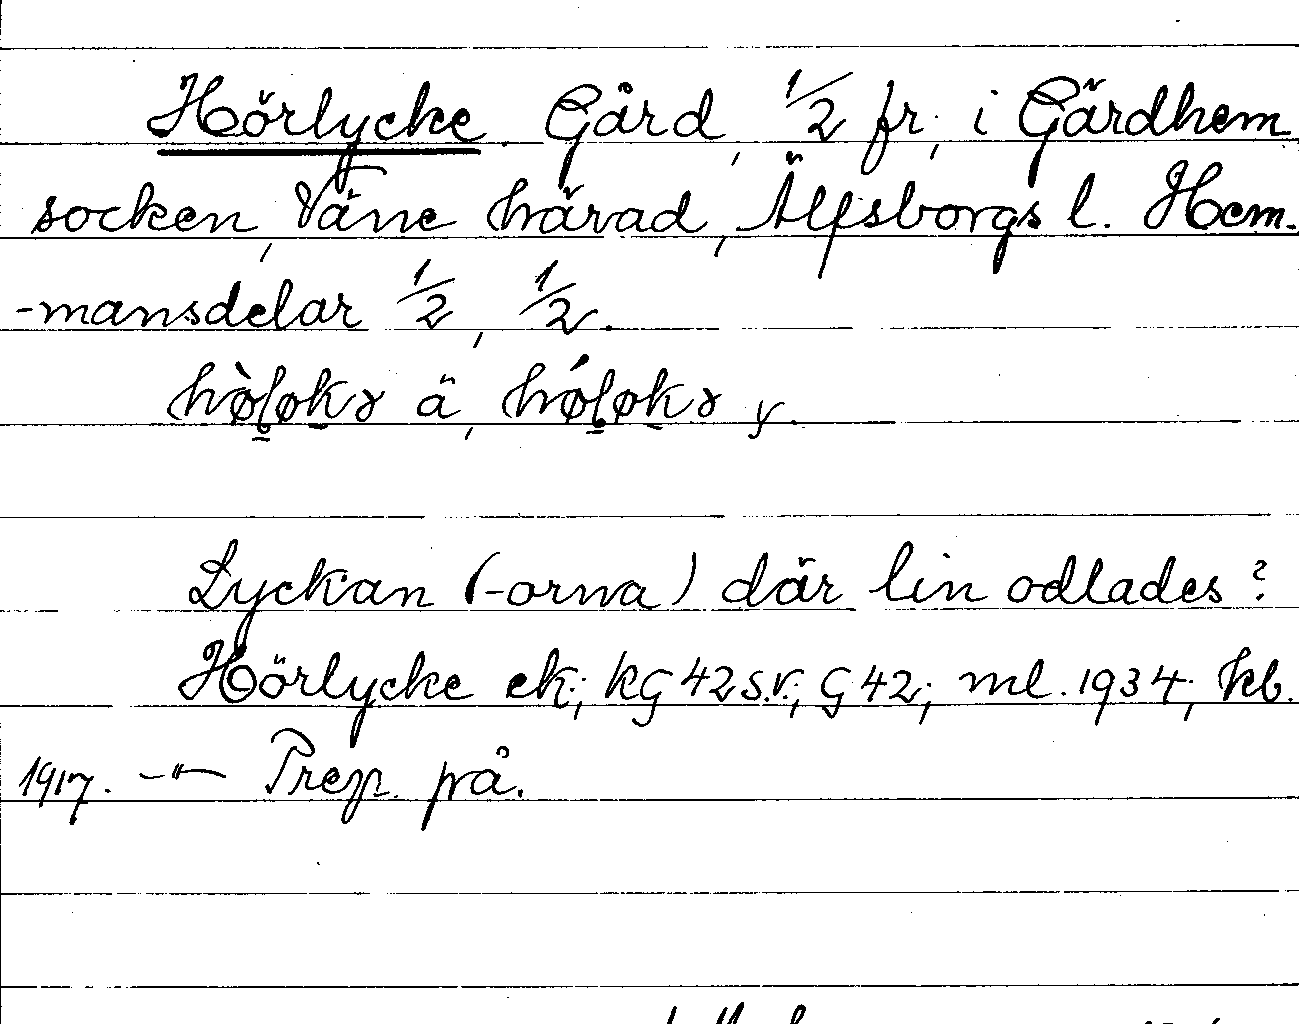 Hörlycke. Gård, 1/2 fr, i Gärdhem
socken, Väne härad, Älfsborgs l. Hem-
-mansdelar 1/2, 1/2.
hø̀ḷøkɤ ä, hǿḷøkɤ y.
Lyckan (-orna) där lin odlades?
Hörlycke ek; KG 42 s.v.; G 42; ml. 1934; kb.
1917. -"- Prep. på.